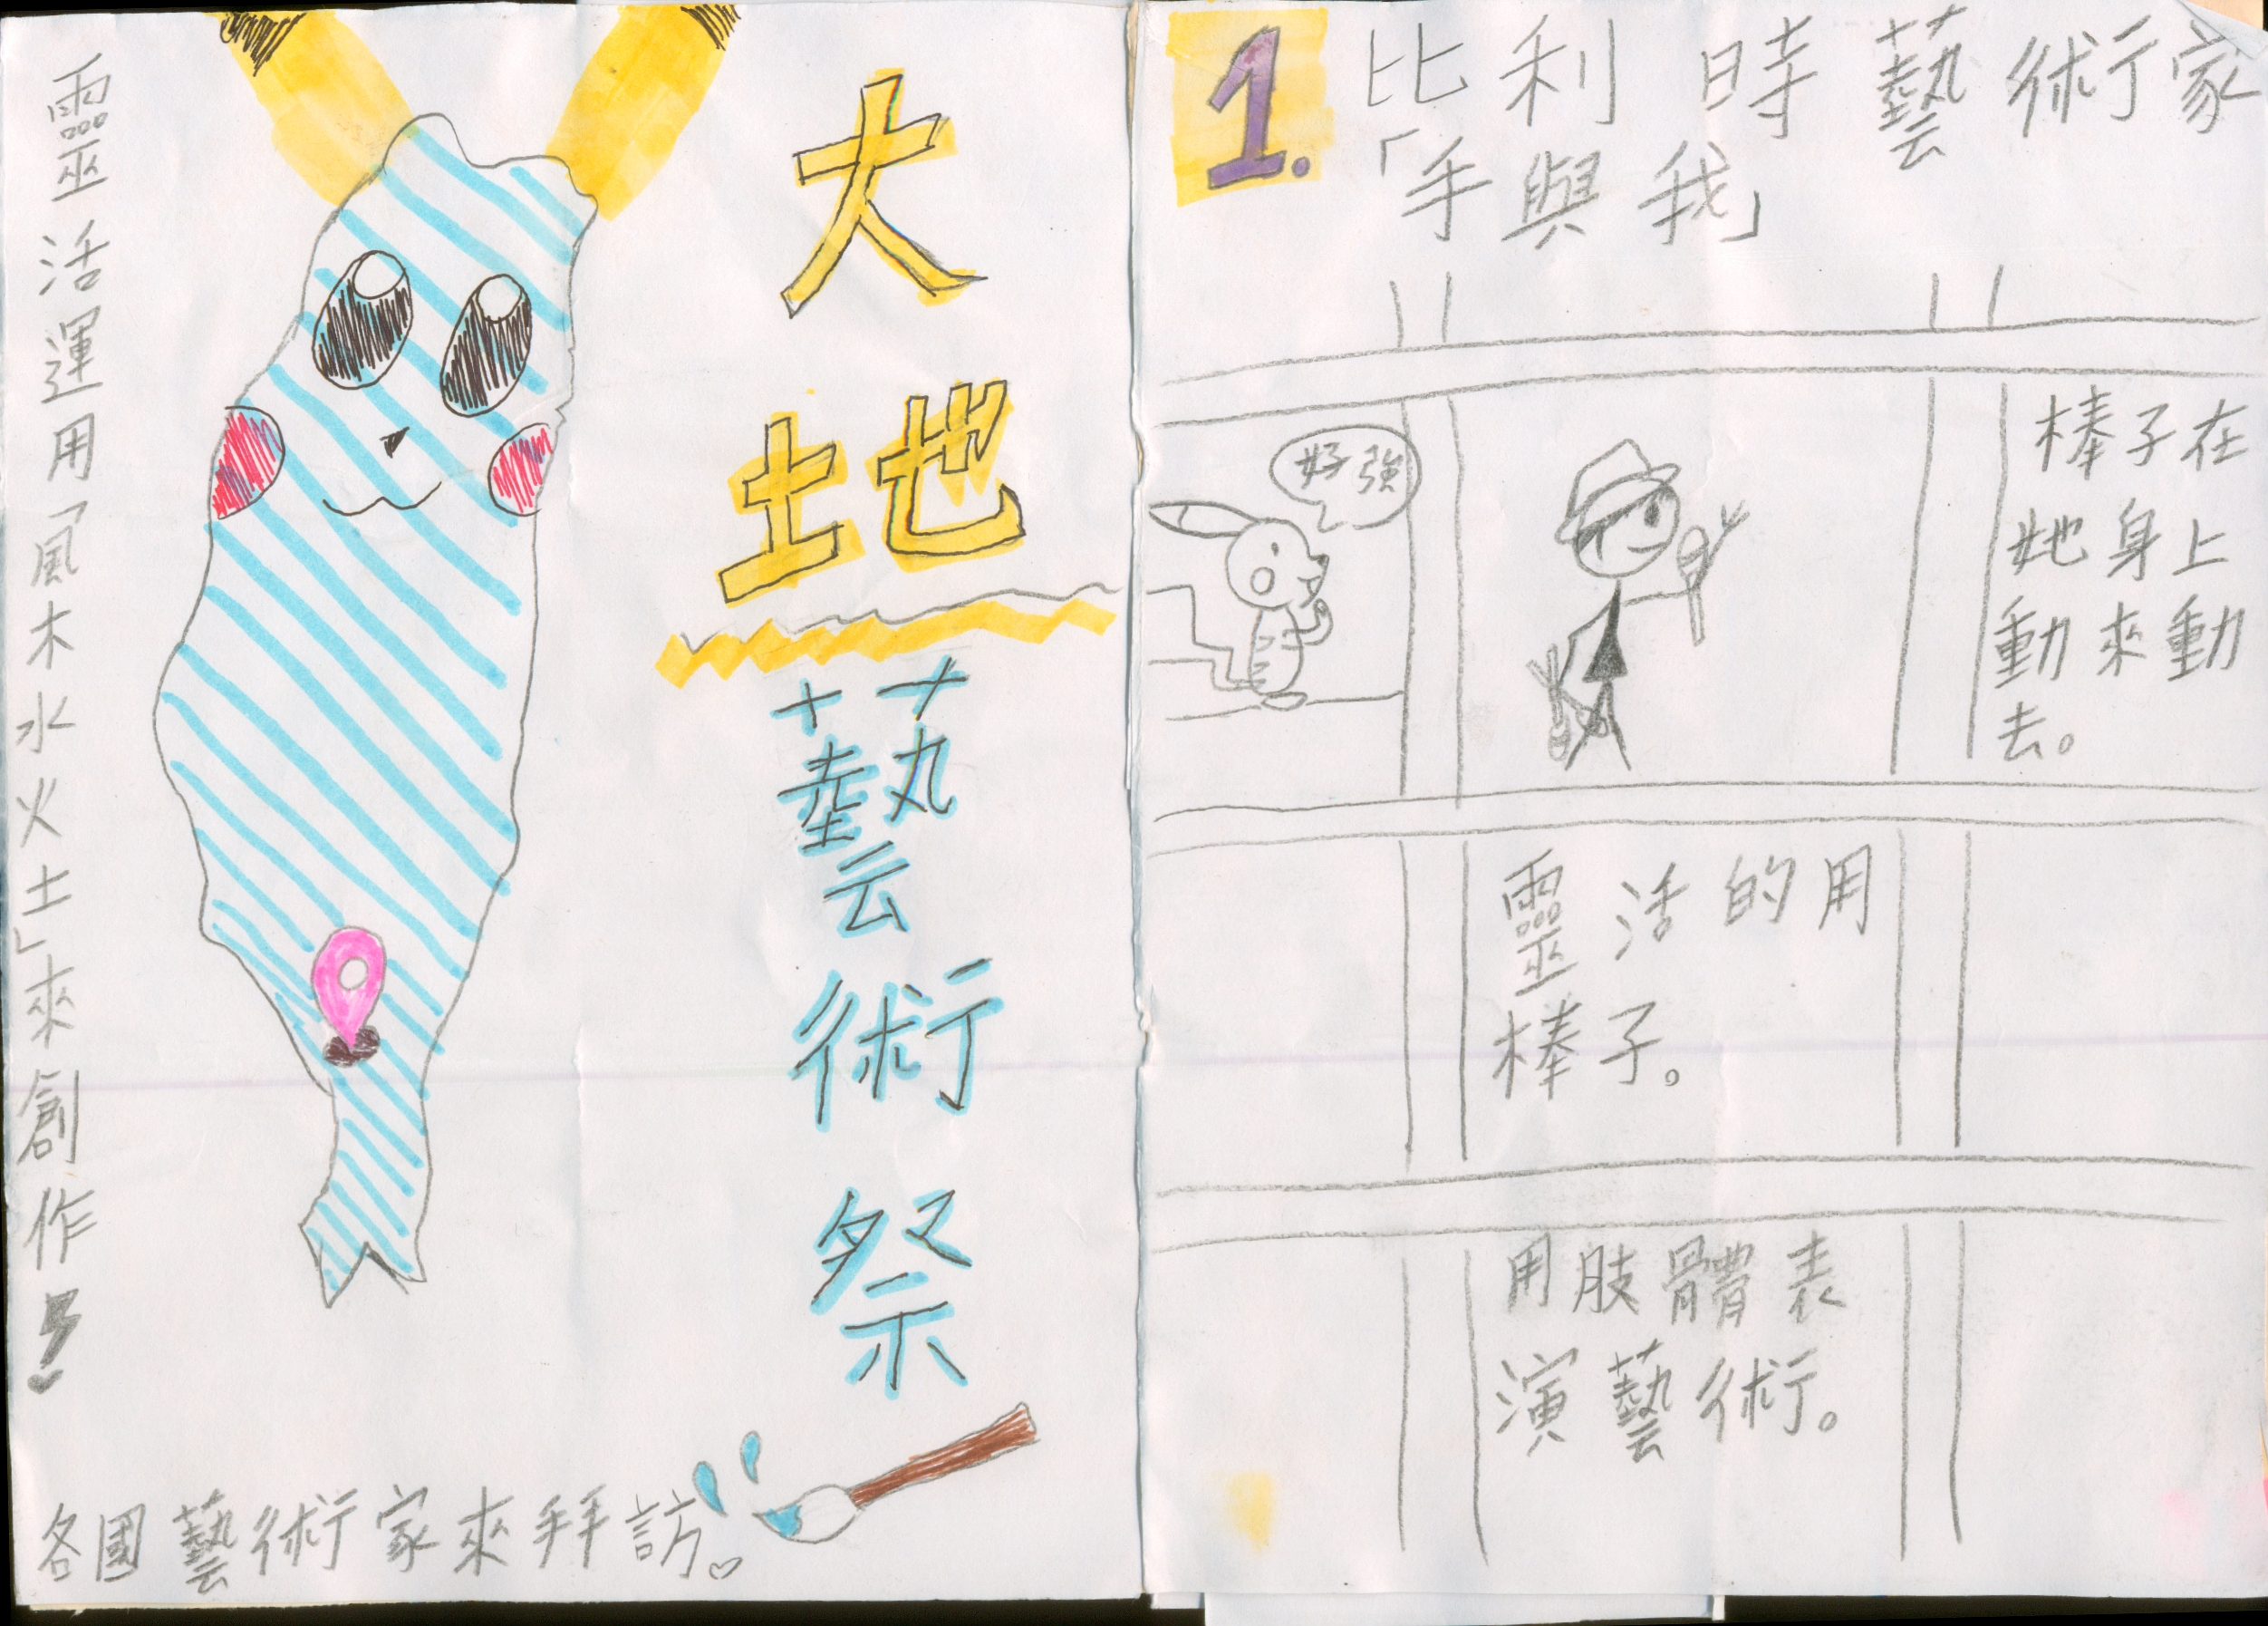 靈活運用「風木水火土」來創作！
大地
藝術祭
各國藝術家來拜訪。
1.
比利時藝術家
「手與我」
好強
棒子在
她身上
動來動
去。
靈活的用
棒子。
用肢體表
演藝術。